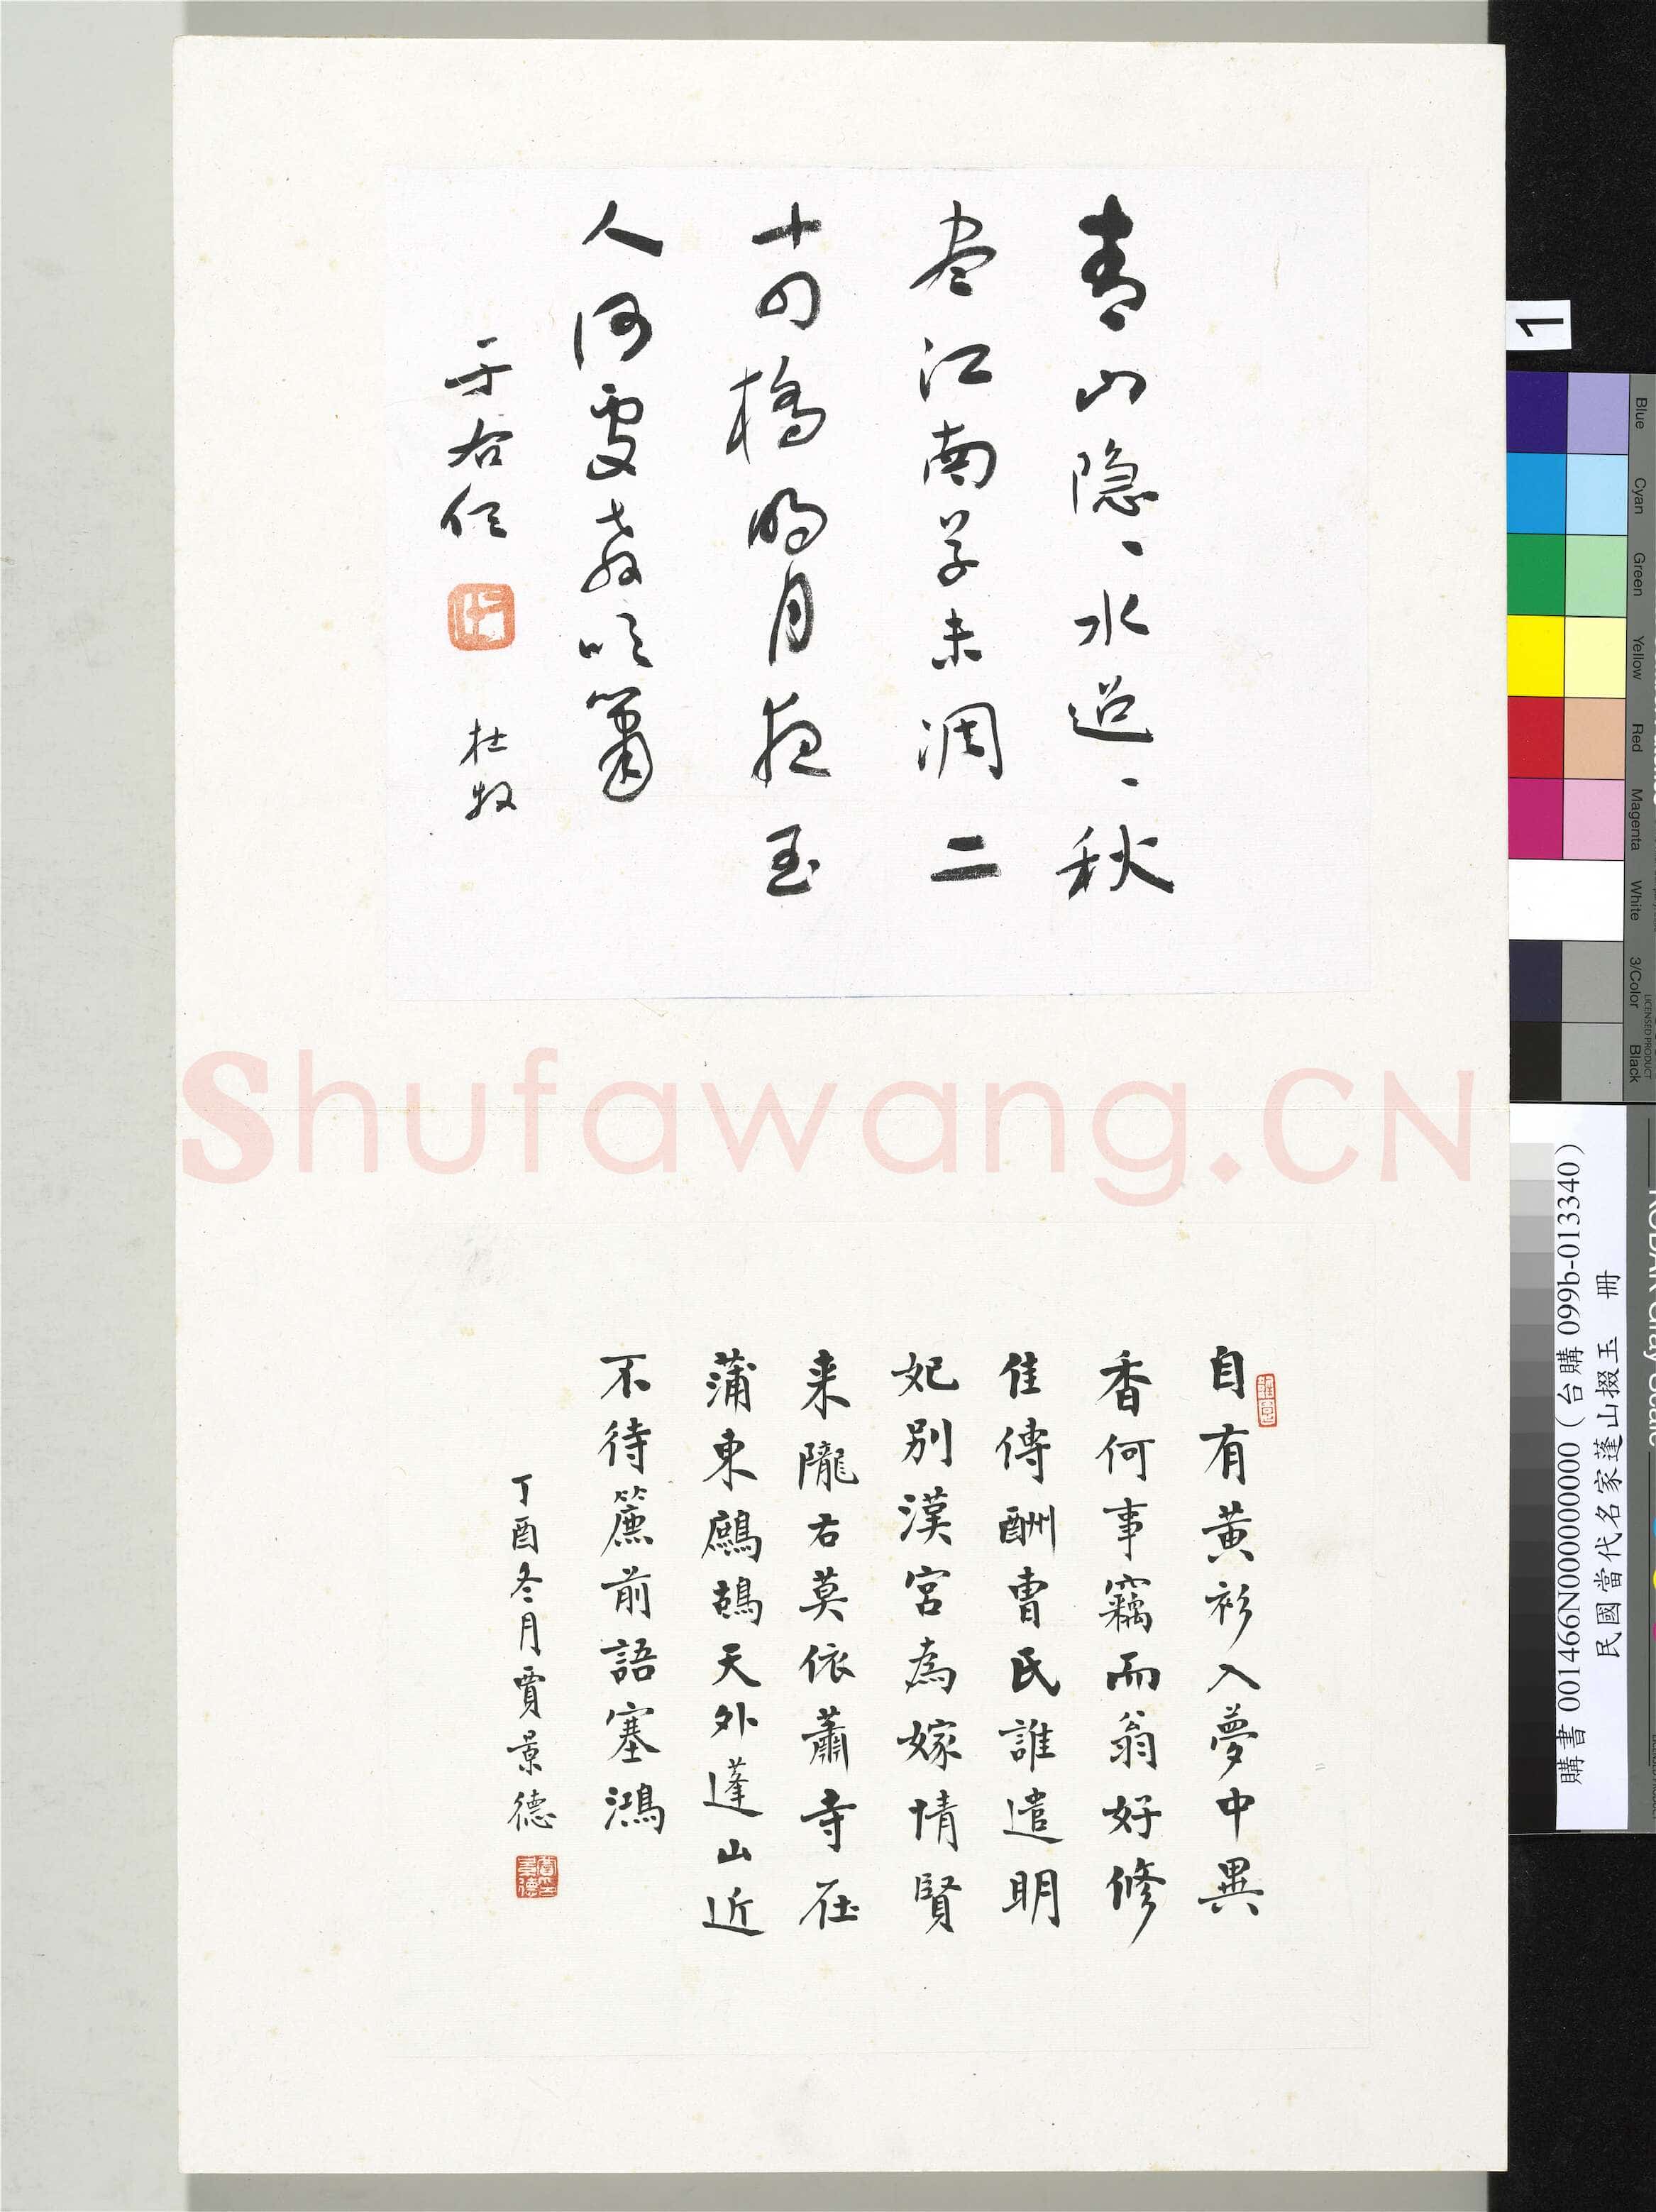 青山隐、水迢、秋
尽江南草未凋二
十四橋明月夜玉
人何處教吹簫
于右任
杜牧
自有黃衫入夢中異
香何事竊而翁好修
佳傳酬曹氏誰遣明
妃別漢宮為嫁情賢
来隴右莫依蕭寺在
蒲東鷓鴣天外蓬山近
不待簾前語塞鴻
丁酉冬月賈景德
Shufawang.CN
1
Blue
Cyan
Green
Yellow
Red
Magenta
White
3/Color
Black
LICENSED PRODUCT
KODAK Gray Scale
購書 001466N000000000（台購 099b-013340）
民國當代名家蓬山掇玉 冊